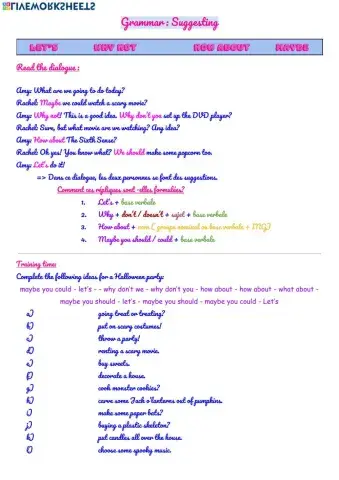 LIVEWORKSHEETS
Grammar : Suggesting
LET'S WHY NOT HOW ABOUT MAYBE
Read the dialogue :
Amy: What are we going to do today?
Rachel: Maybe we could watch a scary movie?
Amy: Why not! This is a good idea. Why don't you set up the DVD player?
Rachel: Sure, but what movie are we watching? Any idea?
Amy: How about The Sixth Sense?
Rachel: Oh yes! You know what? We should make some popcorn too.
Amy: Let's do it!
=> Dans ce dialogue, les deux personnes se font des suggestions.
Comment ces répliques sont-elles formulées?
1. Let's + base verbale
2. Why + don't / doesn't + sujet + base verbale
3. How about + nom ( groupe nominal ou base verbale + ING)
4. Maybe you should / could + base verbale
Training time:
Complete the following ideas for a Halloween party:
maybe you could - let's - - why don't we - why don't you - how about - how about - what about -
maybe you should - let's - maybe you should - maybe you could - Let's
a) going treat or treating?
b) put on scary costumes!
c) throw a party!
d) renting a scary movie.
e) buy sweets.
f) decorate a house.
g) cook monster cookies?
h) carve some Jack o'lanterns out of pumpkins.
i) make some paper bats?
j) buying a plastic skeleton?
k) put candles all over the house.
l) choose some spooky music.